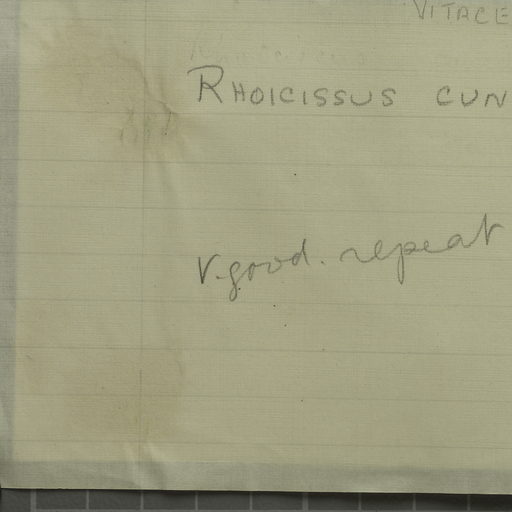 VITACE
RHOICISSUS CUN
V. good. repeat